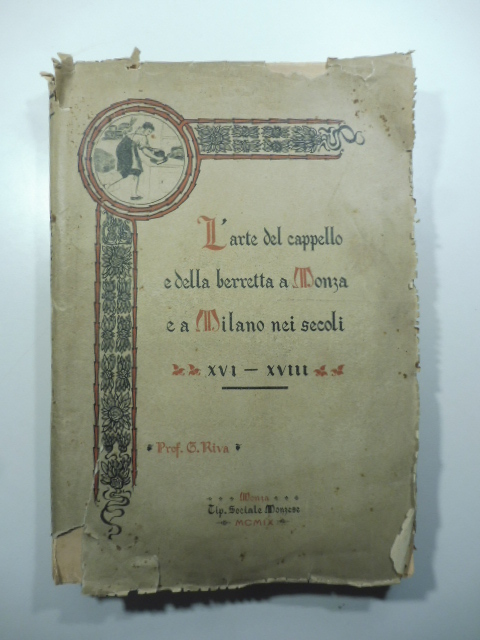 L'arte del cappello
e della berretta a Monza
e a Milano nei secoli
XVI — XVIII
Prof. G. Riva
Monza
Tip. Sociale Monzese
MCMIX